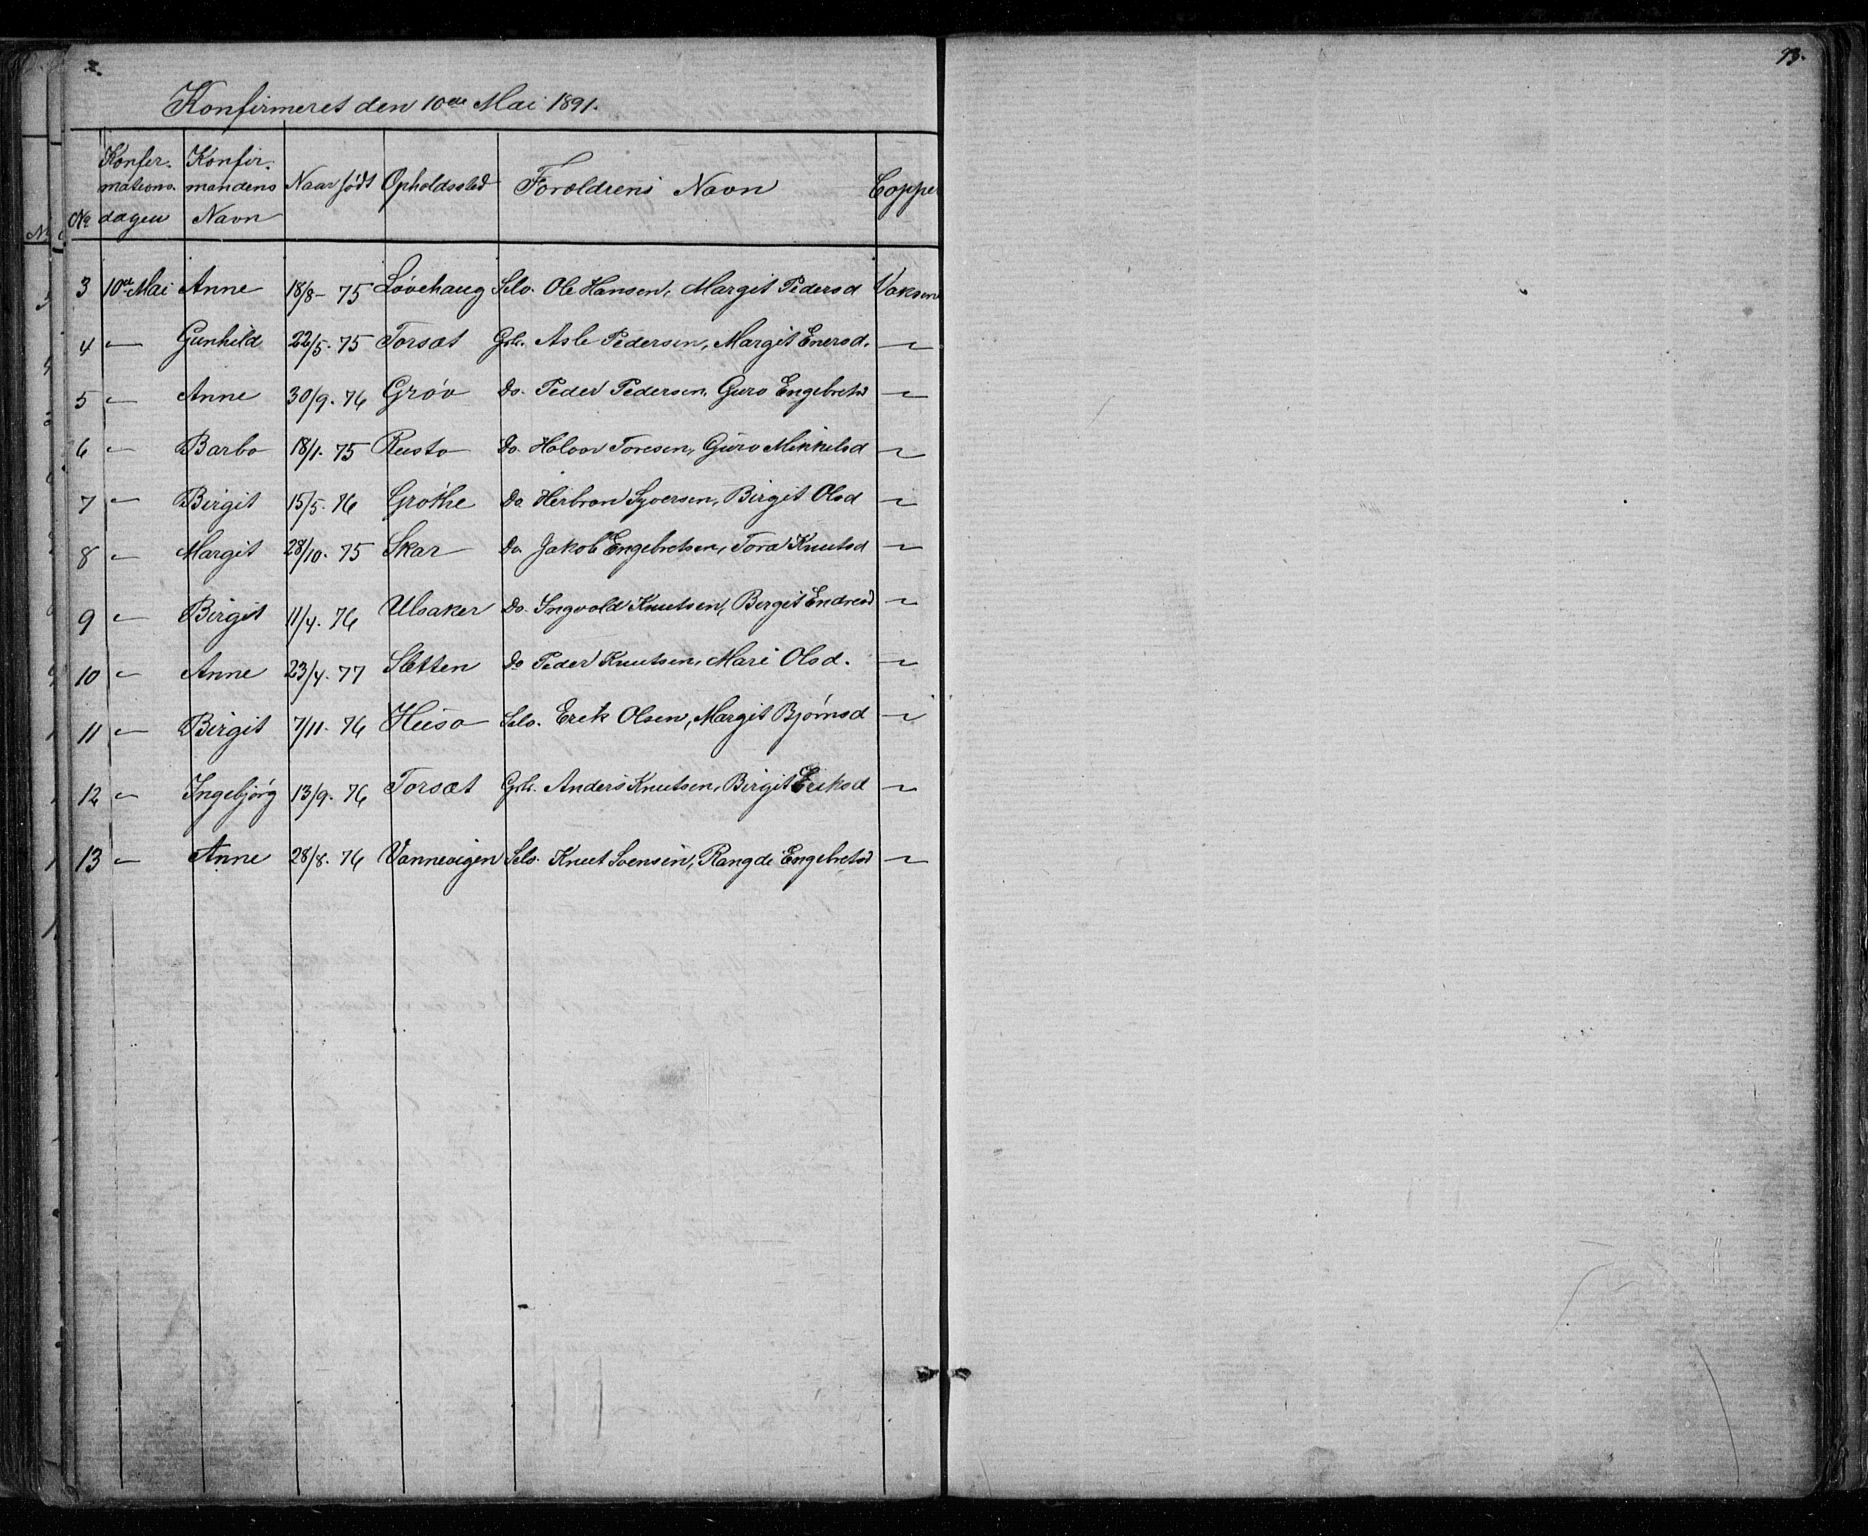 93.
Konfirmeret den 10de Mai 1891.
No Konfirmationsdagen Konfirmandens Navn Naar født Opholdssted Forældrens Navn Coppe
3 10de Mai Anne 18/8 - 75 Løvehaug Selv. Ole Hansen, Margit Pedersd Vaksine
4 — Gunhild 22/5. 75 Torsæt Grbr. Asle Pedersen, Margit Enersd. —
5 — Anne 30/9. 76 Grøv Do. Peder Pedersen, Guro Engebretsd —
6 — Barbo 18/1. 75 Rusto Do. Halvor Toresen, Guro Mikkelsd —
7 — Birgit 15/5. 76 Grøthe Do Herbran Syversen, Birgit Olsd —
8 — Margit 28/10. 75 Skar Do. Jakob Engebretsen, Tora Knutsd —
9 — Birgit 11/4. 76 Ulsaker Do. Ingvald Knutsen, Bergit Endresd —
10 — Anne 23/4. 77 Sletten Do Peder Knutsen, Mari Olsd. —
11 — Birgit 7/11. 76 Huso Selv. Erik Olsen, Margit Bjørnsd —
12 — Ingebjørg 13/9. 76 Torsæt Grbr. Anders Knutsen, Birgit Eriksd —
13 — Anne 28/8. 76 Vannevigen Selv. Knut Svensen, Rangdi Engebretsd —